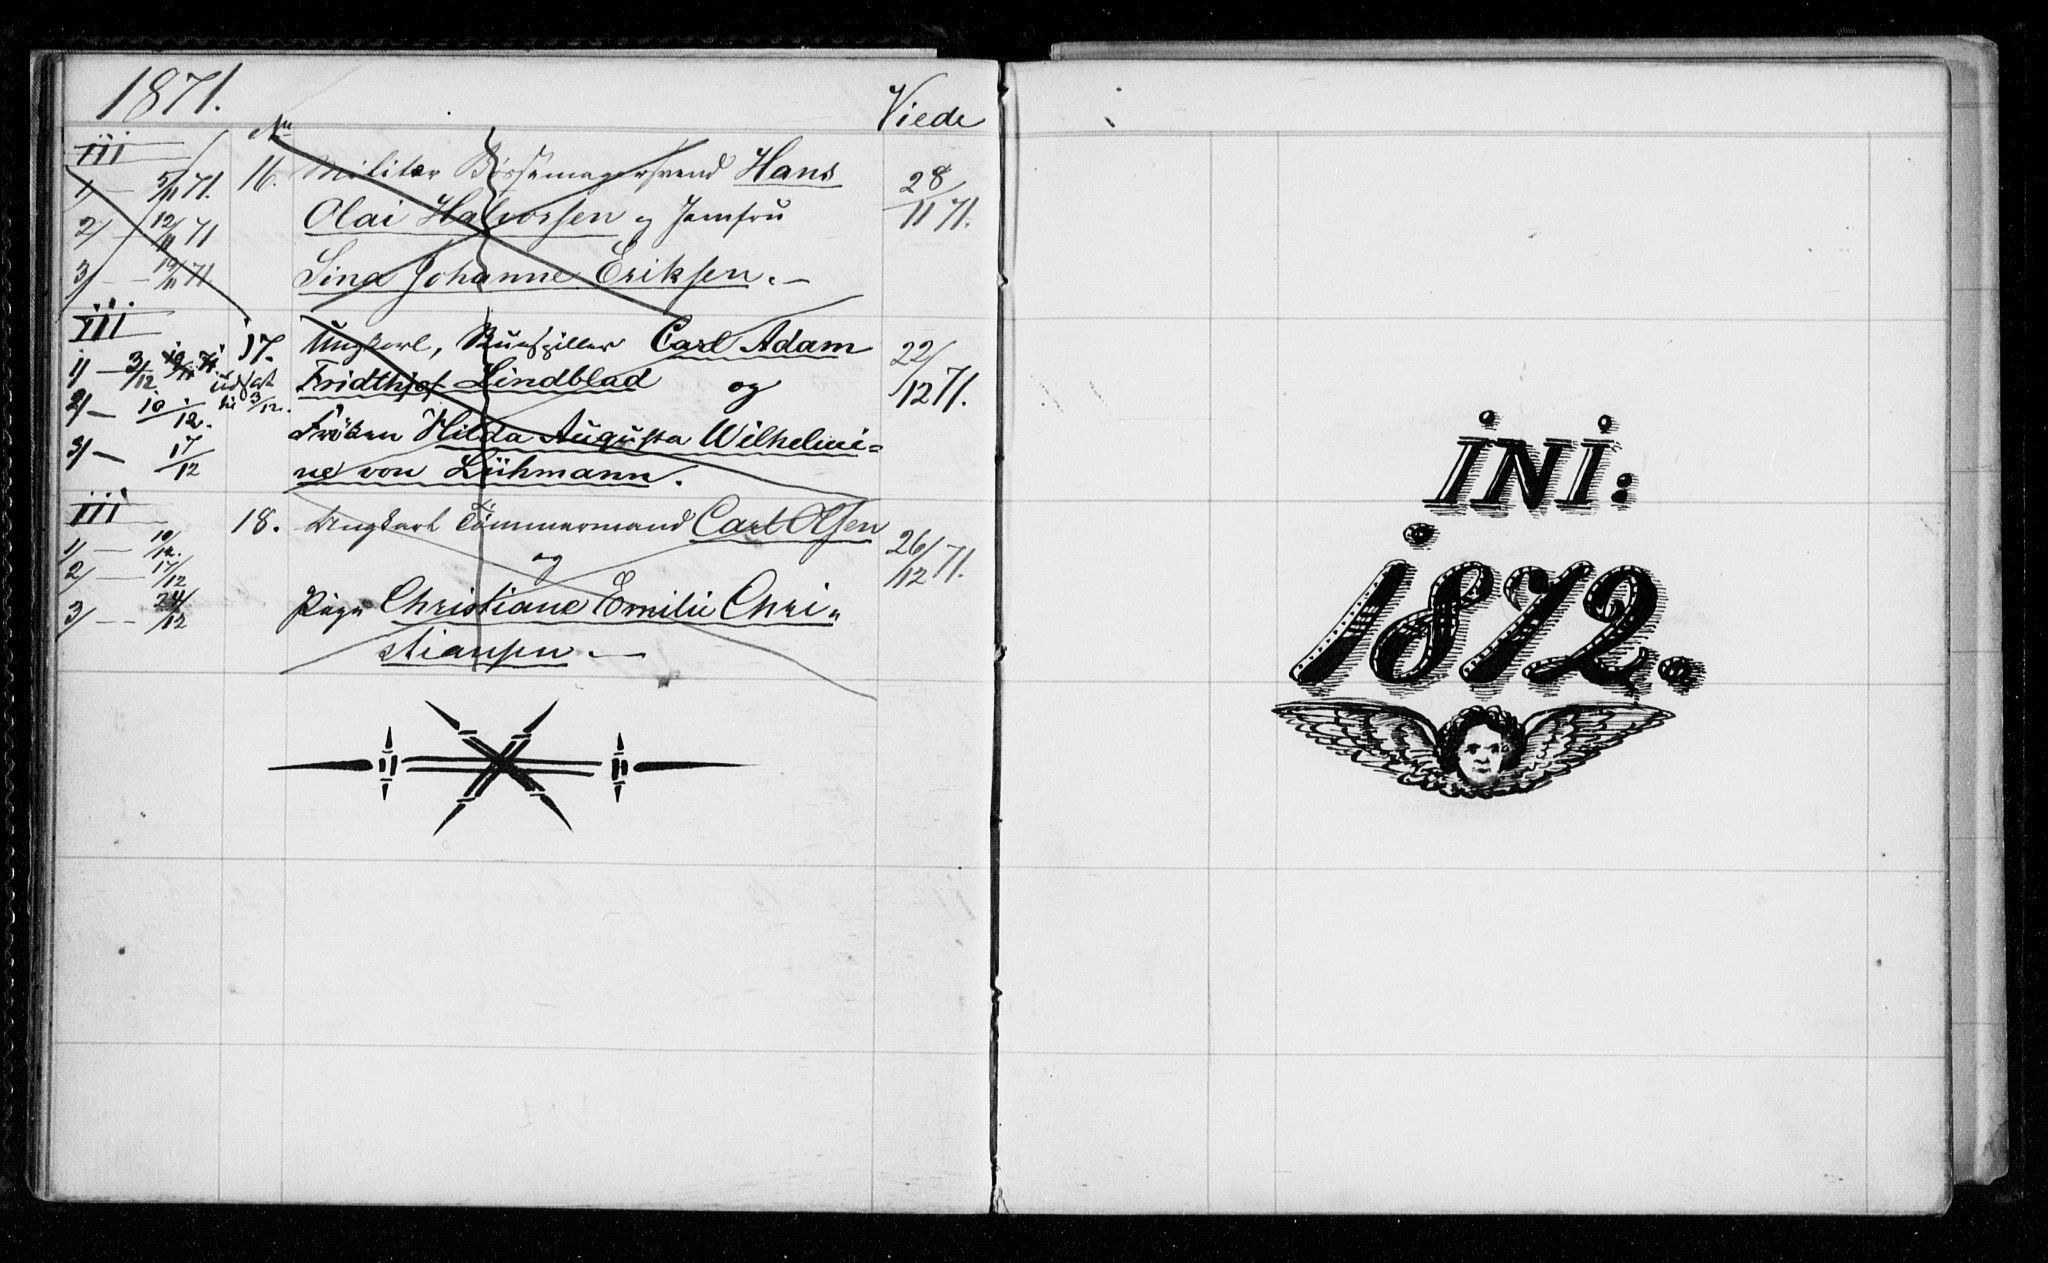 1871. Viede
No
iii
1) — 5/11 71. 16. Militær Bøssemagersvend Hans 28/11 71.
2) — 12/11 71 Olai Halvorsen og Jomfru
3) — — 19/11 71. Sina Johanne Eriksen. —
iii
17. Ungkarl, Carl Adam 22/12 71.
1) — 3/12 19/11 71 udsat til 3/12. Fridthjof Lindblad og
2) — 10/12. Frøken Hilda Augusta Wilhelmi=
3) — 17/12 ne von Lühmann.
iii
18. Ungkarl Tømmermand Carl Olsen 26/12 71.
1) — 10/12. og
2) — 17/12
3) — — 24/12 Pige Christiane Emilie Chri=
stiansen. —
INI:
1872.